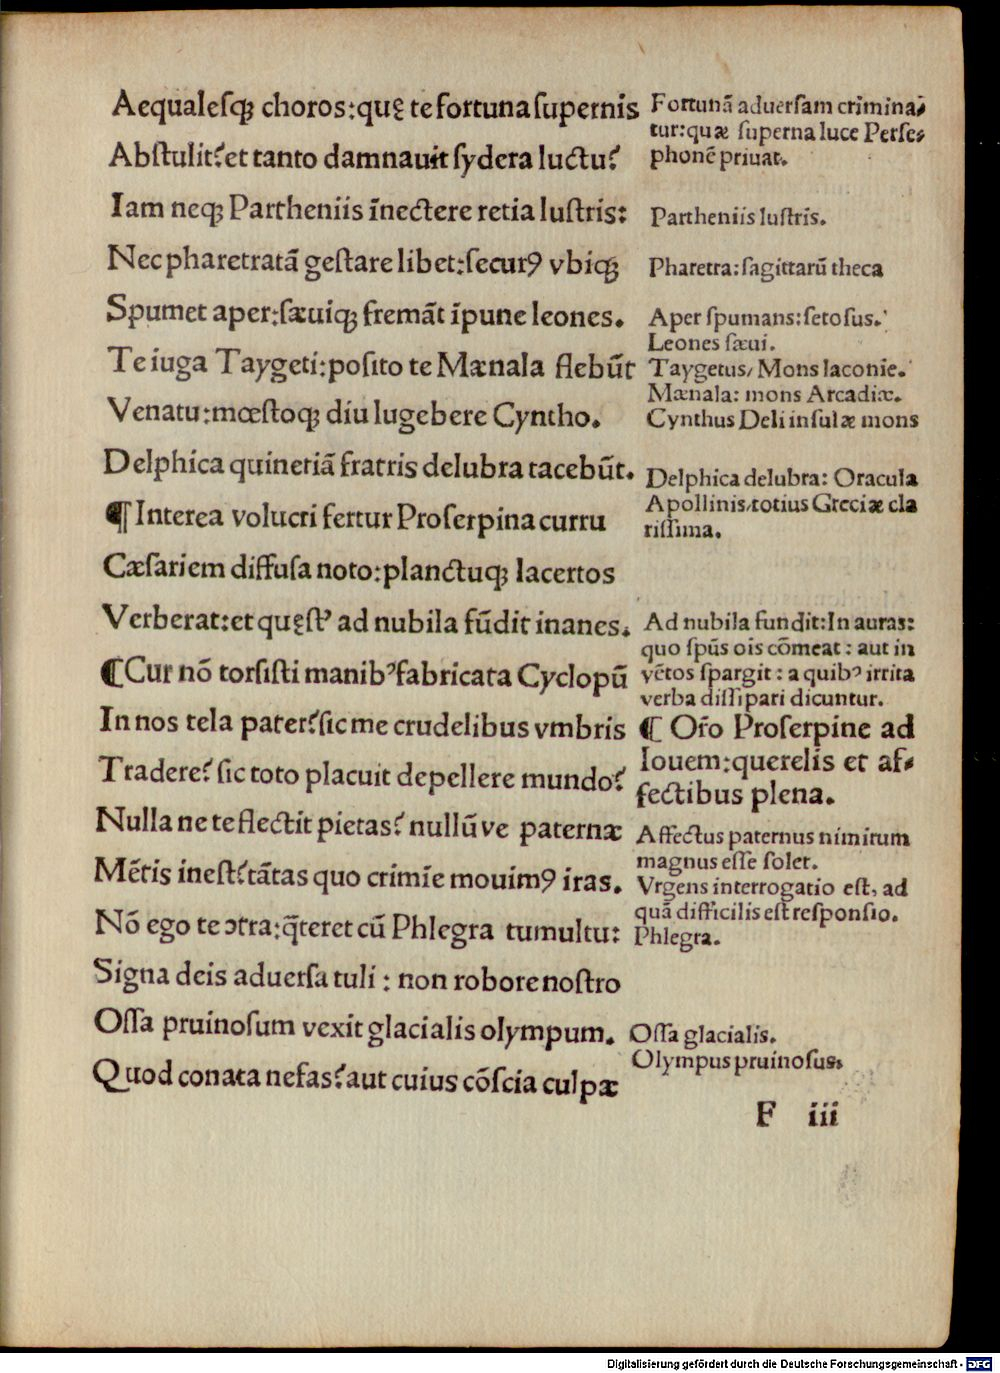 Aequaleſqꝫ choros:quę te fortuna ſupernis
Abſtulit?et tanto damnauit ſydera luctu?
Iam neqꝫ Partheniis īnectere retia luſtris:
Nec pharetratā geſtare libet:ſecurꝰ vbiqꝫ
Spumet aper:ſæuiqꝫ fremāt īpune leones.
Te iuga Taygeti:poſito te Mænala flebūt
Venatu:mœſtoqꝫ diu lugebere Cyntho.
Delphica quinetiā fratris delubra tacebūt.
¶ Interea volucri fertur Proſerpina curru
Cæſariem diffuſa noto:planctuqꝫ lacertos
Verberat:et quęſtꝰ ad nubila fūdit inanes.
¶Cur nō torſiſti manibꝰfabricata Cyclopū
In nos tela pater?ſic me crudelibus vmbris
Tradere? ſic toto placuit depellere mundo?
Nulla ne te flectit pietas? nullū ve paternæ
Mētis ineſt?tātas quo crimīe mouimꝰ iras.
Nō ego te ↄtra:q̄teret cū Phlegra tumultu:
Signa deis aduerſa tuli : non robore noſtro
Oſſa pruinoſum vexit glacialis olympum.
Quod conata nefas?aut cuius cōſcia culpæ
Fortunā aduerſam crimina-
tur:quæ ſuperna luce Perſe-
phonē priuat.
Partheniis luſtris.
Pharetra:ſagittarū theca
Aper ſpumans:ſetoſus.
Leones ſæui.
Taygetus/ Mons laconie.
Mænala: mons Arcadiæ.
Cynthus Deli inſulæ mons
Delphica delubra: Oracula
Apollinis/totius Greciæ cla
riſſima.
Ad nubila fundit:In auras:
quo ſpūs ois cōmeat : aut in
vētos ſpargit : a quibꝰ irrita
verba diſſipari dicuntur.
¶ Or̄o Proſerpine ad
Iouem:querelis et af-
fectibus plena.
Affectus paternus nimirum
magnus eſſe ſolet.
Vrgens interrogatio eſt, ad
quā difficilis eſt reſponſio.
Phlegra.
Oſſa glacialis.
Olympus pruinoſus.
F iii
Digitalisierung gefördert durch die Deutsche Forschungsgemeinschaft - DFG